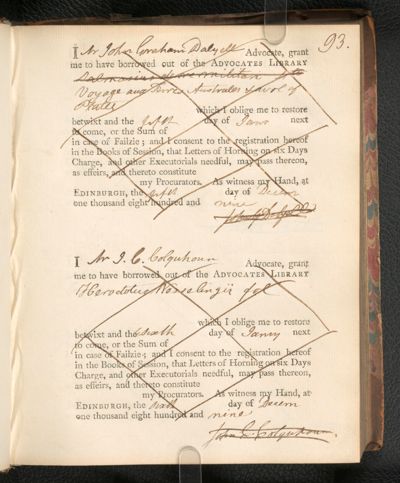 93.
I Mr John Graham Dalyell Advocate, grant
me to have borrowed out of the ADVOCATES LIBRARY
Salmasius de re militari
Voyage aux Terres Australes 1 vol &
Plates
which I oblige me to restore
betwixt and the day of Janry next
to come, or the Sum of
in case of Failzie; and I consent to the registration hereof
in the Books of Session, that Letters of Horning on six Days
Charge, and other Executorials needful, may pass thereon,
as effeirs, and thereto constitute
my Procurators. As witness my Hand, at
EDINBURGH, the day of Decem
one thousand eight hundred and nine
John G Dalyell
I Mr J. C. Colquhoun Advocate, grant
me to have borrowed out of the ADVOCATES LIBRARY
Herodotus Wesselingii fol
which I oblige me to restore
betwixt and the day of Janry next
to come, or the Sum of
in case of Failzie; and I consent to the registration hereof
in the Books of Session, that Letters of Horning on six Days
Charge, and other Executorials needful, may pass thereon,
as effeirs, and thereto constitute
my Procurators. As witness my Hand, at
EDINBURGH, the day of Decem
one thousand eight hundred and nine
John C. Colquhoun